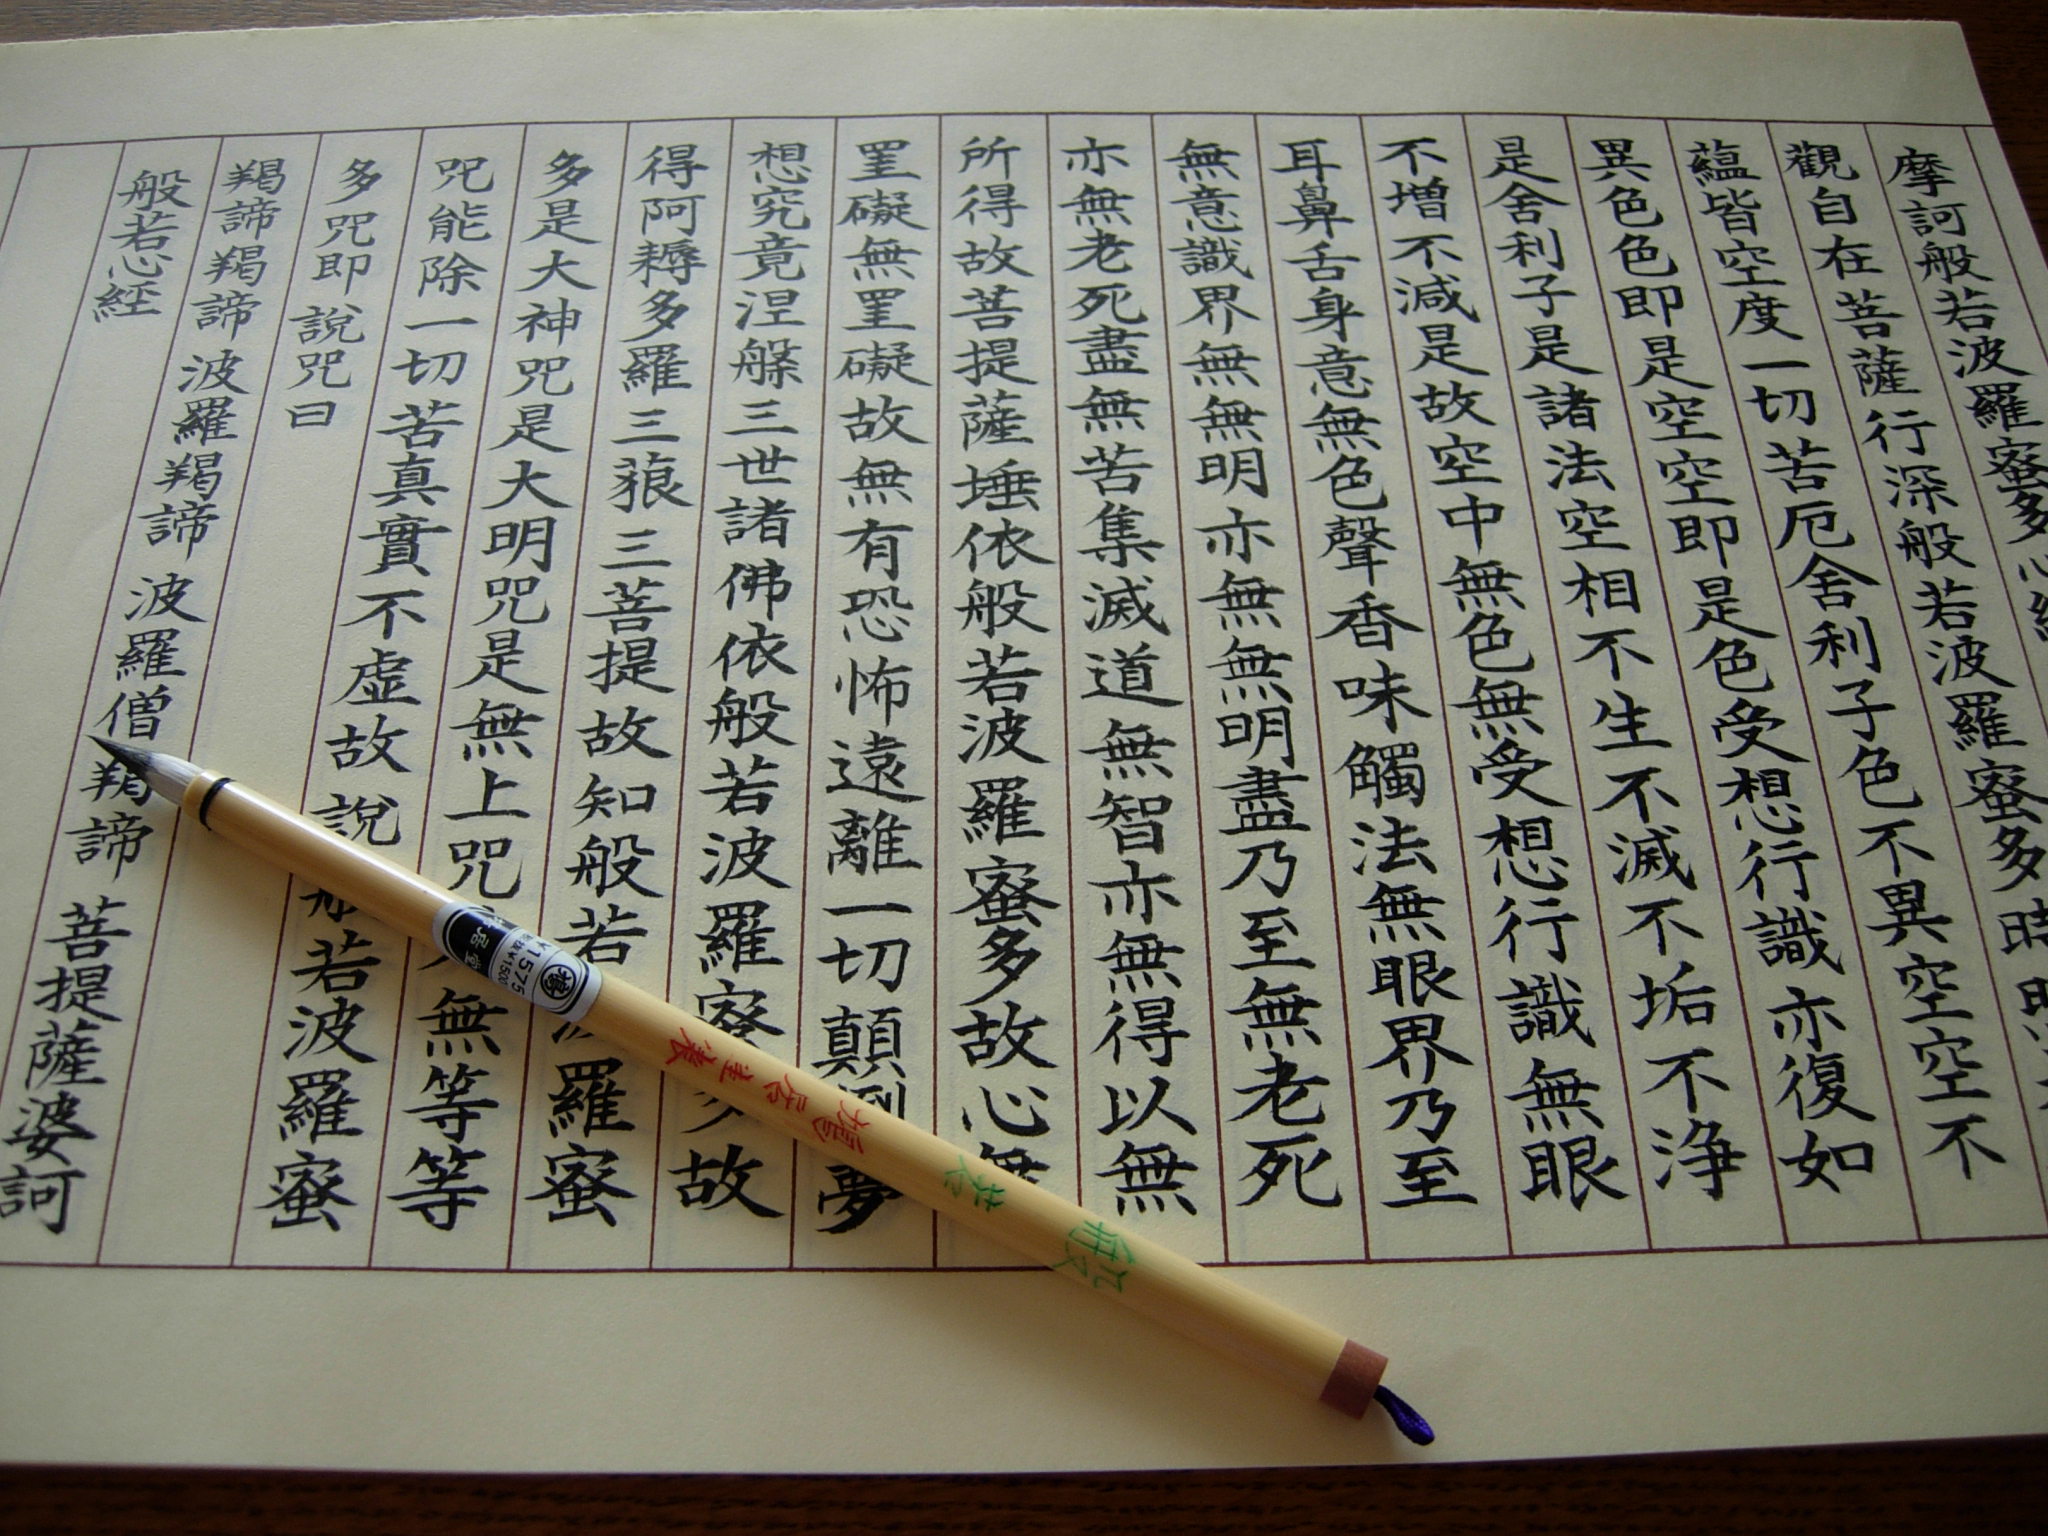 摩訶般若波羅蜜多心經
觀自在菩薩行深般若波羅蜜多時照
蘊皆空度一切苦厄舍利子色不異空空不
異色色即是空空即是色受想行識亦復如
是舍利子是諸法空相不生不滅不垢不浄
不增不減是故空中無色無受想行識無眼
耳鼻舌身意無色聲香味觸法無眼界乃至
無意識界無無明亦無無明盡乃至無老死
亦無老死盡無苦集滅道無智亦無得以無
所得故菩提薩埵依般若波羅蜜多故心無
罣礙無罣礙故無有恐怖遠離一切顛倒夢
想究竟涅槃三世諸佛依般若波羅蜜多故
得阿耨多羅三藐三菩提故知般若波羅蜜
多是大神咒是大明咒是無上咒是無等等
咒能除一切苦真實不虛故說般若波羅蜜
多咒即說咒曰
羯諦羯諦波羅羯諦波羅僧羯諦菩提薩婆訶
般若心經
¥1575